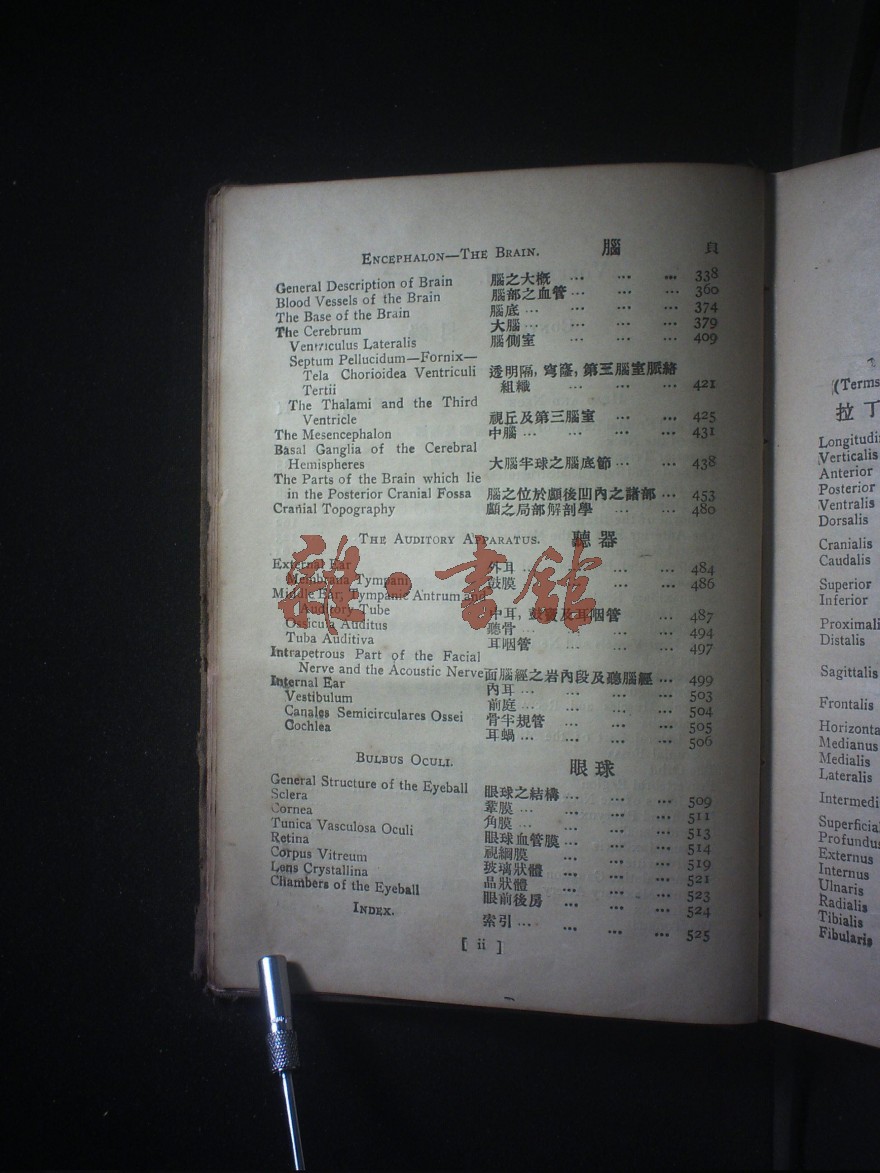 ENCEPHALON—THE BRAIN. 腦 頁
General Description of Brain 腦之大概 ... ... ... 338
Blood Vessels of the Brain 腦部之血管 ... ... ... 360
The Base of the Brain 腦底 ... ... ... 374
The Cerebrum 大腦 ... ... ... 379
Ventriculus Lateralis 腦側室 ... ... ... 409
Septum Pellucidum—Fornix—
Tela Chorioidea Ventriculi 透明隔, 穹窿, 第三腦室脈絡
Tertii 組織 ... ... ... 421
The Thalami and the Third
Ventricle 視丘及第三腦室 ... ... 425
The Mesencephalon 中腦 ... ... ... 431
Basal Ganglia of the Cerebral
Hemispheres 大腦半球之腦底節 ... ... 438
The Parts of the Brain which lie
in the Posterior Cranial Fossa 腦之位於顱後凹內之諸部 ... 453
Cranial Topography 顱之局部解剖學 ... ... 480
THE AUDITORY APPARATUS. 聽器
External Ear 外耳 ... ... ... 484
Membrana Tympani 鼓膜 ... ... ... 486
Middle Ear, Tympanic Antrum and
Auditory Tube 中耳, 鼓竇及耳咽管 ... 487
Ossicula Auditus 聽骨 ... ... ... 494
Tuba Auditiva 耳咽管 ... ... ... 497
Intrapetrous Part of the Facial
Nerve and the Acoustic Nerve 面腦經之岩內段及聽腦經 ... 499
Internal Ear 內耳 ... ... ... 503
Vestibulum 前庭 ... ... ... 504
Canales Semicirculares Ossei 骨半規管 ... ... ... 505
Cochlea 耳蝸 ... ... ... 506
BULBUS OCULI. 眼球
General Structure of the Eyeball 眼球之結構 ... ... ... 509
Sclera 鞏膜 ... ... ... 511
Cornea 角膜 ... ... ... 513
Tunica Vasculosa Oculi 眼球血管膜 ... ... ... 514
Retina 視網膜 ... ... ... 519
Corpus Vitreum 玻璃狀體 ... ... ... 521
Lens Crystallina 晶狀體 ... ... ... 523
Chambers of the Eyeball 眼前後房 ... ... ... 524
INDEX. 索引 ... ... ... 525
[ ii ]
雜·書館
(Terms
拉丁
Longitudi
Verticalis
Anterior
Posterior
Ventralis
Dorsalis
Cranialis
Caudalis
Superior
Inferior
Proximali
Distalis
Sagittalis
Frontalis
Horizonta
Medianus
Medialis
Lateralis
Intermedi
Superficia
Profundus
Externus
Internus
Ulnaris
Radialis
Tibialis
Fibularis